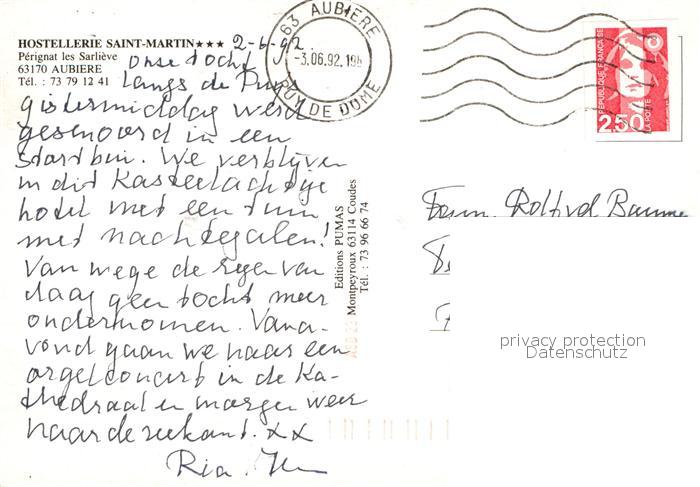 HOSTELLERIE SAINT-MARTIN★★★
Pérignat les Sarliève
63170 AUBIERE
Tél. : 73 79 12 41
2-6-92
onze tocht
langs de Puy
gistermiddag werd
gesmoord in een
stortbui. We verblijven
in dit Kasteelachtige
hotel met een tuin
met nachtegalen!
Vanwege de regen van
daag geen tocht meer
ondernomen. Vana-
vond gaan we naar een
orgelconcert in de Ka-
thedraal en morgen weer
naar de zeekant. xx
Ria.
Editions PUMAS
Montpeyroux 63114 Coudes
Tél. : 73 96 66 74
63 AUBIERE
-3.06.92
PUY DE DOME
REPUBLIQUE FRANÇAISE
2,50
LA POSTE
Fam.
privacy protection
Datenschutz